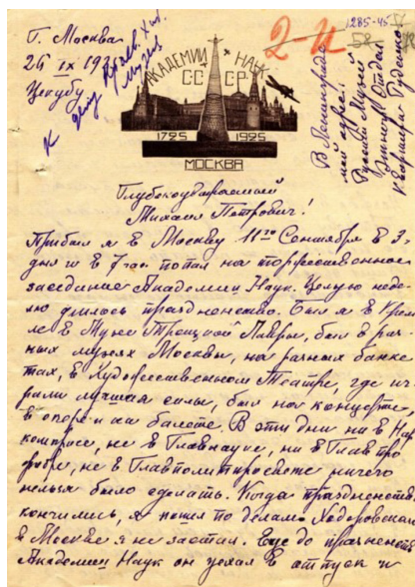 Г. Москва
26 IX 192
Цекубу
К делу Краев. Худ. Музея
2-11
1285-45
52
58
АКАДЕМИИ НАУК
СССР
1725 1925
МОСКВА
В Ленинграде
мой адрес
Русский Музей
Этногр. Отдел
Квартира Руденко
Глубокоуважаемый
Михаил Петрович!
Прибыл я в Москву 11го Сентября в 3 ч.
дня и в 7 час. попал на торжественное
заседание Академии Наук. Целую неде-
лю длилось празднество. Был я в Крем
ле в Музее Троицкой Лавры, был в раз-
ных музеях Москвы, на разных банке
тах, в Художественном Театре, где иг
рали лучшая силы, был на концерте
в опере и на балете. В эти дни ни в Нар
компросе, не в Главнауке, ни в Главпро
фобре, не в Главполитпросвете ничего
нельзя было сделать. Когда празднества
кончились, я пошел по делам. Ходоровская
в Москве я не застал. Еще до празднеств
Академии Наук он уехал в отпуск и